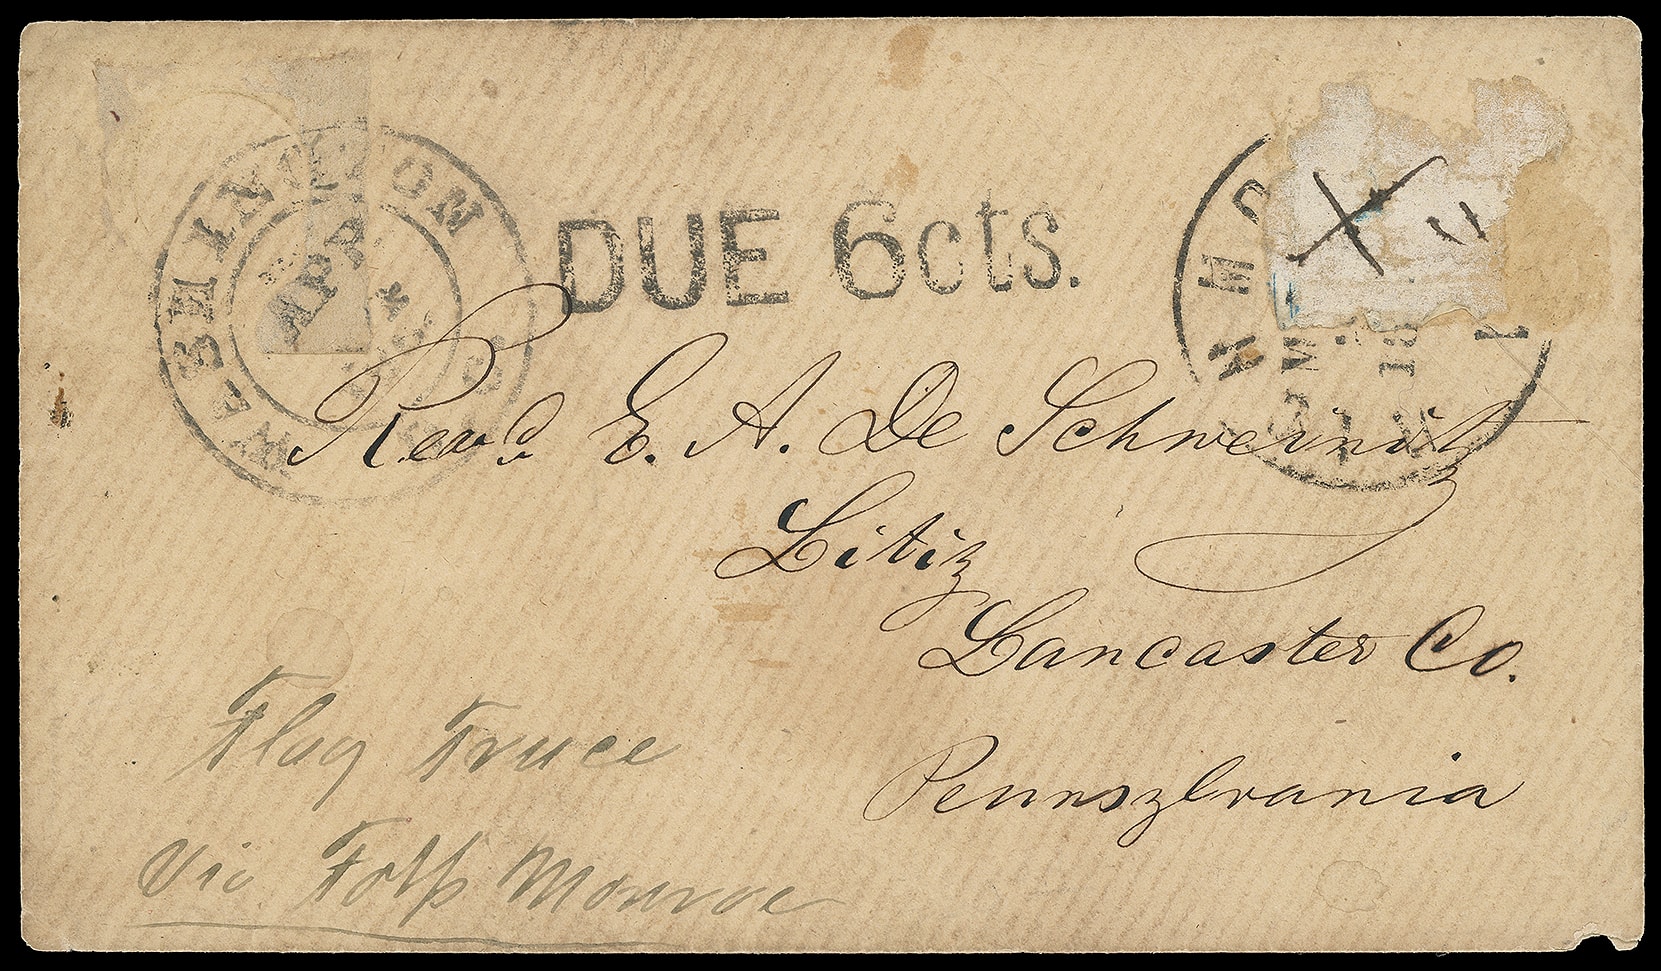 WASHINGTON
APR
DUE 6cts.
Revd. E. A. De Schweinitz
Litiz
Lancaster Co.
Pennsylvania
Flag Truce
via
Monroe